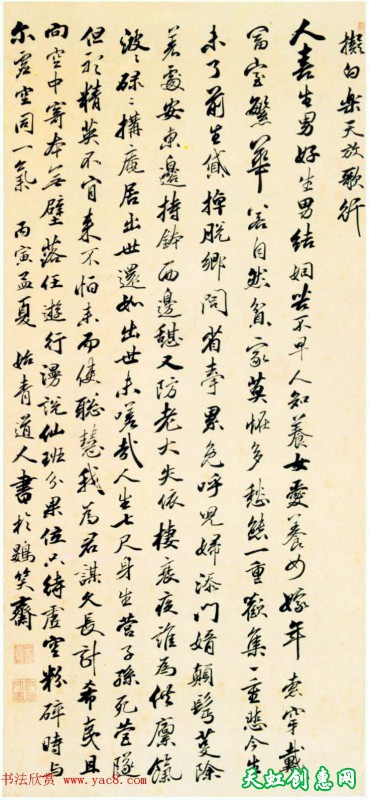 擬白樂天放歌行
人喜生男好生男結姻苦不早人知養女愛養女嫁年索穿戴
富室繁華若自然貧家莫怪多愁態一重歡集一重悲今生
未了前生貸掉脫鄉閭省牽累免呼兒婦添門婿顛髩除
若處安東邊持鉢西邊憩又防老大失依棲衰疲誰為供廩餼
波波碌碌構庵居出世還如出世未嗟哉人生七尺身生營子孫死營隧
但形精英不來不怕来而使聰慧我為君謀久長計希夷且
向空中寄本無壁落任遊行漫說仙班分果位只待虛空粉碎時與
尔虛空同一氣 丙寅孟夏 始青道人書於鷃笑齋
书法欣赏 www.yac8.com
天虹创意网